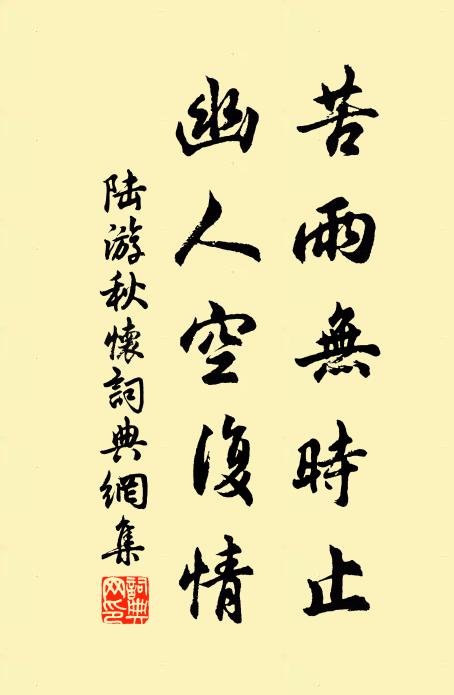 苦雨無時止
幽人空復情
陸游秋懷詞典網集
詞典網印